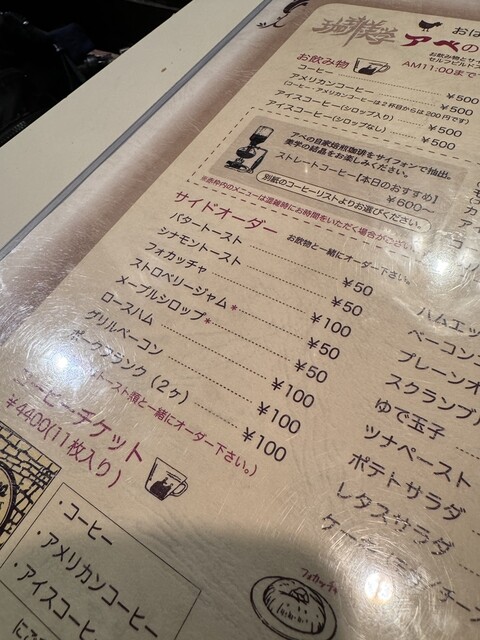 珈琲美学
おは
アベの
お飲み物とサ
セルフビルド
AM11:00まで
お飲み物
コーヒー ¥500
アメリカンコーヒー ¥500
(コーヒー・アメリカンコーヒーは2杯目からは200円です)
アイスコーヒー(シロップ入り) ¥500
アイスコーヒー(シロップなし) ¥500
アベの自家焙煎珈琲をサイフォンで抽出。
美学の結晶をお楽しみください。
ストレートコーヒー【本日のおすすめ】
¥600〜
別紙のコーヒーリストよりお選びください。
※赤枠内のメニューは混雑時にお時間をいただく場合がござい
サイドオーダー お飲物と一緒にオーダー下さい。
バタートースト ¥50
シナモントースト ¥50
フォカッチャ ¥100
ストロベリージャム* ¥50
メープルシロップ* ¥50
ロースハム ¥100
グリルベーコン ¥100
ポークフランク(2ヶ) ¥100
トースト類と一緒にオーダー下さい。)
コーヒーチケット
¥4400(11枚入り)
・コーヒー
・アメリカンコーヒー
・アイスコーヒー
フォカッチャ
ハムエッ
ベーコン
プレーンオ
スクランブル
ゆで玉子
ツナペースト
ポテトサラダ
レタスサラダ